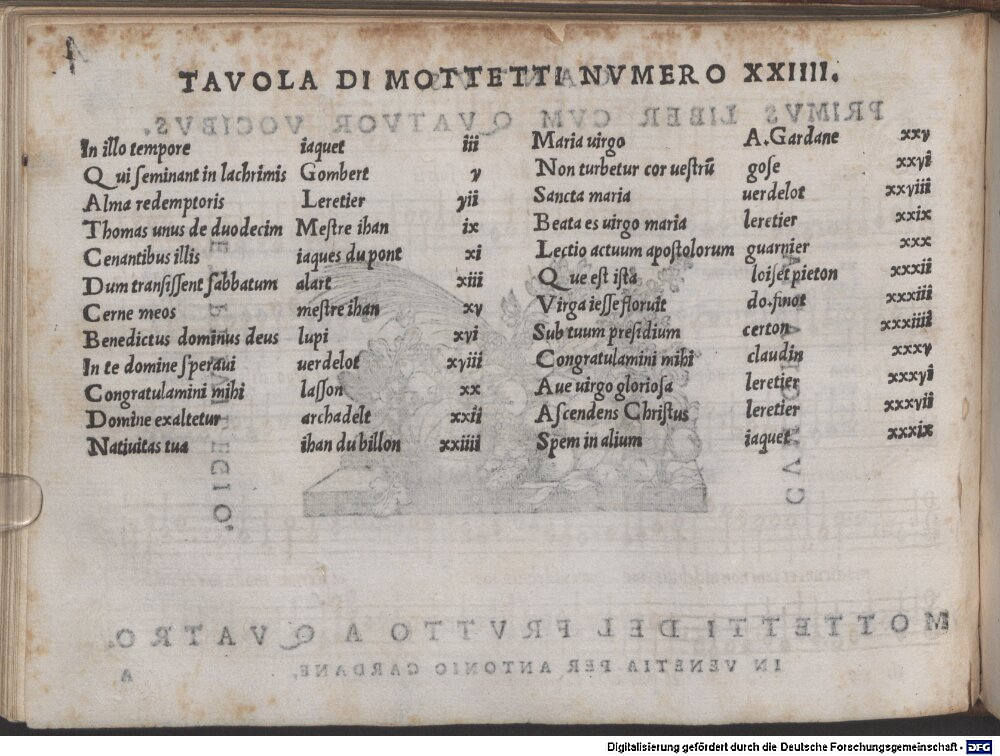 TAVOLA DI MOTTETTI NVMERO XXIIII.
In illo tempore iaquet iii
Qui seminant in lachrimis Gombert v
Alma redemptoris Leretier vii
Thomas unus de duodecim Mestre ihan ix
Cenantibus illis iaques du pont xi
Dum transissent sabbatum alart xiii
Cerne meos mestre ihan xv
Benedictus dominus deus lupi xvi
In te domine speraui uerdelot xviii
Congratulamini mihi lasson xx
Domine exaltetur archadelt xxii
Natiuitas tua ihan du billon xxiiii
Maria uirgo A. Gardane xxv
Non turbetur cor uestrū gose xxvi
Sancta maria uerdelot xxviii
Beata es uirgo maria leretier xxix
Lectio actuum apostolorum guarnier xxx
Que est ista loiset pieton xxxii
Virga iesse floruit do. finot xxxiii
Sub tuum presidium certon xxxiiii
Congratulamini mihi claudin xxxv
Aue uirgo gloriosa leretier xxxvi
Ascendens Christus leretier xxxvii
Spem in alium iaquet xxxix
PRIMVS LIBER CVM QVATVOR VOCIBVS.
MOTTETTI DEL FRVTTO A QVATRO.
IN VENETIA PER ANTONIO GARDANE.
A
Digitalisierung gefördert durch die Deutsche Forschungsgemeinschaft - DFG